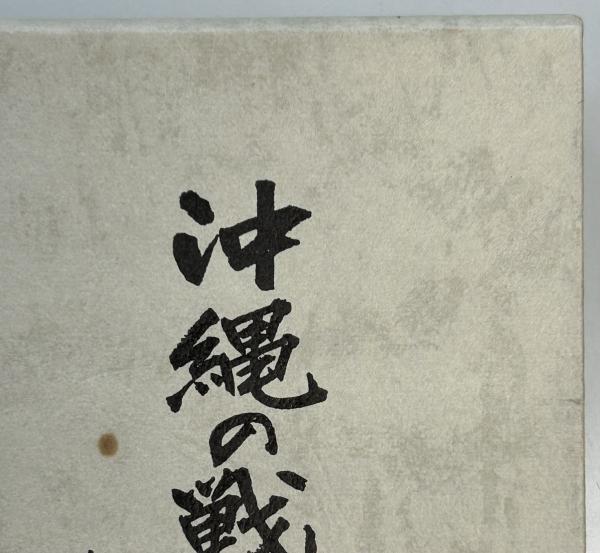 沖縄の戦